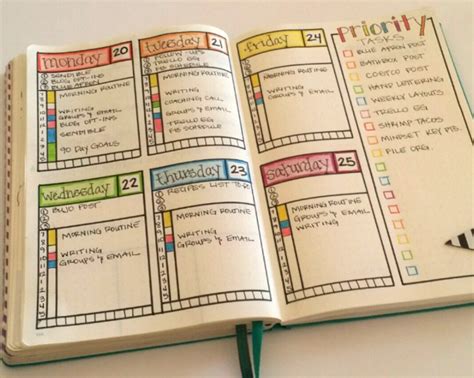 monday 20
SENDIBLE
BLOG OPT-INS
BLUE APRON
MORNING ROUTINE
WRITING
GROUPS & EMAIL
BLOG OPT-INS
SENDIBLE
90 DAY GOALS
tuesday 21
FOLLOW-UPS
TRELLO EG
FB SCHEDULE
MORNING ROUTINE
WRITING
COACHING CALL
GROUPS & EMAIL
TRELLO EG
FB SCHEDULE
wednesday 22
BUJO POST
MORNING ROUTINE
WRITING
GROUPS & EMAIL
thursday 23
RECIPES LIST TO
MORNING ROUTINE
WRITING
GROUPS & EMAIL
friday 24
MORNING ROUTINE
WRITING
GROUPS & EMAIL
saturday 25
MORNING ROUTINE
WRITING
GROUPS & EMAIL
priority
TASKS
BLUE APRON POST
BATHBOX POST
COSTCO POST
HAND LETTERING
WEEKLY LAYOUTS
TRELLO EG
SHRIMP TACOS
MINDSET KEY PTS.
PILE ORG.